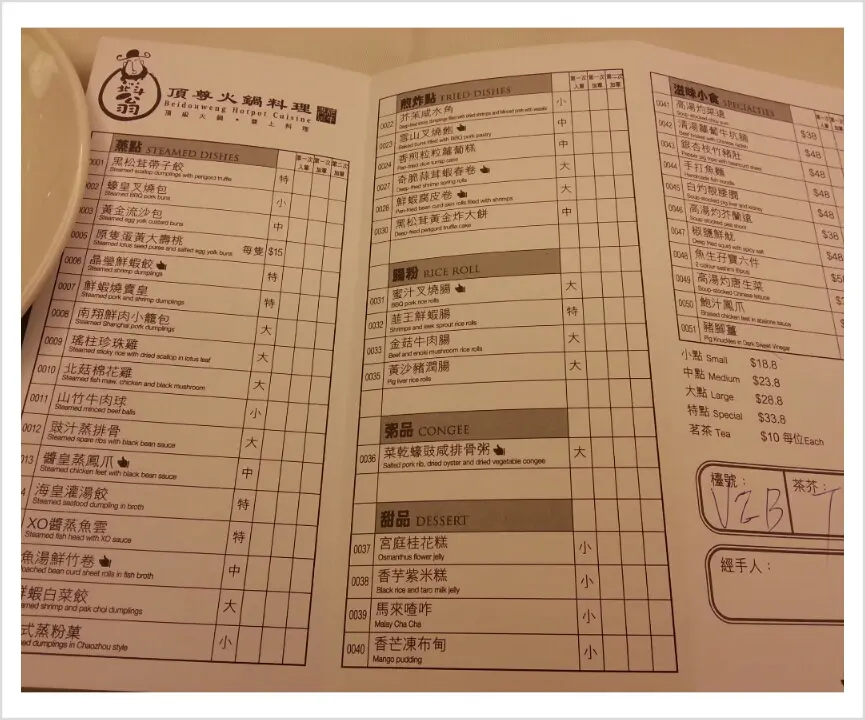 北斗翁
頂尊火鍋料理
Beidouweng Hotpot Cuisine
頂級火鍋 • 譽上料理
蒸點 STEAMED DISHES
第一次入單 第一次加單 第二次加單
0001 黑松茸帶子餃 特
Steamed scallop dumplings with perigord truffle
002 蠔皇叉燒包 小
Steamed BBQ pork buns
003 黃金流沙包 中
Steamed egg yolk custard buns
0005 原隻蛋黃大壽桃 每隻 $15
Steamed lotus seed puree and salted egg yolk buns
0006 晶瑩鮮蝦餃 特
Steamed shrimp dumplings
0007 鮮蝦燒賣皇 特
Steamed pork and shrimp dumplings
0008 南翔鮮肉小籠包 大
Steamed Shanghai pork dumplings
0009 瑤柱珍珠雞 大
Steamed sticky rice with dried scallop in lotus leaf
0010 北菇棉花雞 大
Steamed fish maw, chicken and black mushroom
0011 山竹牛肉球 小
Steamed minced beef balls
0012 豉汁蒸排骨 大
Steamed spare ribs with black bean sauce
013 醬皇蒸鳳爪 中
Steamed chicken feet with black bean sauce
4 海皇灌湯餃 特
Steamed seafood dumpling in broth
XO醬蒸魚雲 特
Steamed fish head with XO sauce
魚湯鮮竹卷 中
oached bean curd sheet rolls in fish broth
鮮蝦白菜餃 大
amed shrimp and pak choi dumplings
式蒸粉菓 小
ed dumplings in Chaozhou style
煎炸點 FRIED DISHES
第一次入單 第一次加單 第二次加單
0022 芥茉咸水角 小
Deep-fried dumplings filled with dried shrimps and minced pork with wasabi
0023 雪山叉燒飽 中
Baked buns filled with BBQ pork pastry
0024 香煎粒粒蘿蔔糕 中
Pan-fried diced turnip cake
0027 奇脆蒜茸蝦春卷 大
Deep-fried shrimp spring rolls
0028 鮮蝦腐皮卷 大
Pan-fried bean curd skin rolls filled with shrimps
0030 黑松茸黃金炸大餅 中
Deep-fried perigord truffle cake
腸粉 RICE ROLL
0031 蜜汁叉燒腸 大
BBQ pork rice rolls
0032 韮王鮮蝦腸 特
Shrimps and leek sprout rice rolls
0033 金菇牛肉腸 大
Beef and enoki mushroom rice rolls
0035 黃沙豬潤腸 大
Pig liver rice rolls
粥品 CONGEE
0036 菜乾蠔豉咸排骨粥 大
Salted pork rib, dried oyster and dried vegetable congee
甜品 DESSERT
0037 宮庭桂花糕 小
Osmanthus flower jelly
0038 香芋紫米糕 小
Black rice and taro milk jelly
0039 馬來喳咋 小
Malay Cha Cha
0040 香芒凍布甸 小
Mango pudding
滋味小食 SPECIALTIES
0041 高湯灼菜遠 $38
0042 清湯蘿蔔牛坑腩 $48
0043 銀杏枝竹豬肚 $48
0044 手打魚麵 $48
0045 白灼靚腰膶 $48
Soup-stocked pig liver and kidney
0046 高湯灼芥蘭遠 $38
0047 椒鹽鮮魷 $48
Deep fried squid with spice salt
0048 魚生孖寶六件
2 colour sashimi
0049 高湯灼唐生菜
Soup-stocked Chinese lettuce
0050 鮑汁鳳爪
Braised chicken feet in abalone sauce
0051 豬腳薑
Pig Knuckles in Dark Sweet Vinegar
小點 Small $18.8
中點 Medium $23.8
大點 Large $28.8
特點 Special $33.8
茗茶 Tea $10 每位Each
檯號： V2B 茶芥： T
經手人：